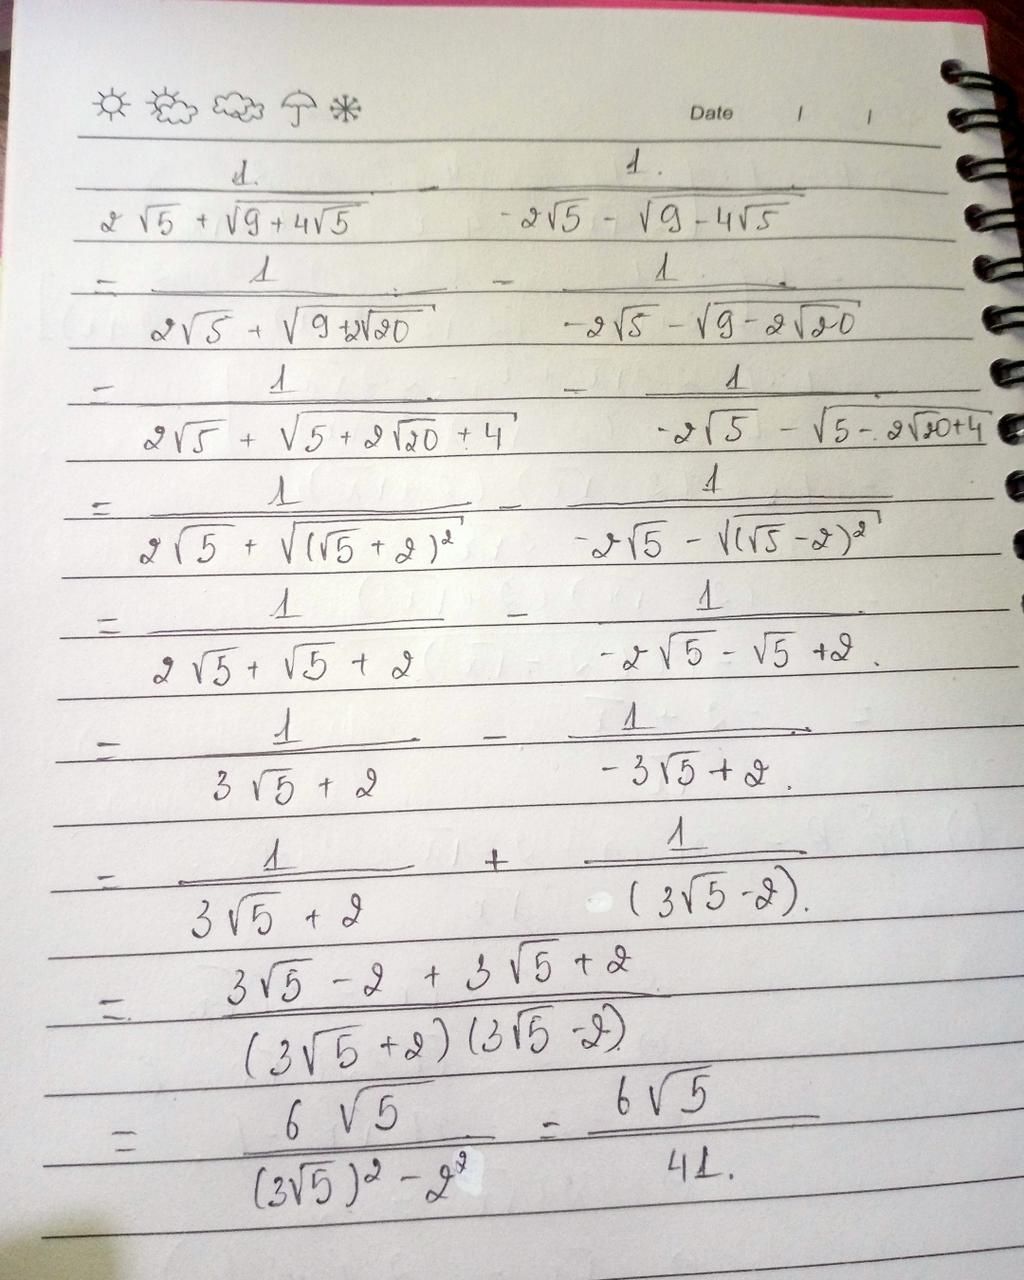 Date / /
1. / (2√5 + √(9+4√5)) - 1. / (-2√5 - √(9-4√5))
= 1 / (2√5 + √(9+2√20)) - 1 / (-2√5 - √(9-2√20))
= 1 / (2√5 + √(5+2√20+4)) - 1 / (-2√5 - √(5-2√20+4))
= 1 / (2√5 + √((√5+2)²)) - 1 / (-2√5 - √((√5-2)²))
= 1 / (2√5 + √5 + 2) - 1 / (-2√5 - √5 + 2).
= 1 / (3√5 + 2) - 1 / (-3√5 + 2).
= 1 / (3√5 + 2) + 1 / (3√5 - 2).
= (3√5 - 2 + 3√5 + 2) / ((3√5 + 2)(3√5 - 2))
= 6√5 / ((3√5)² - 2²) = 6√5 / 41.